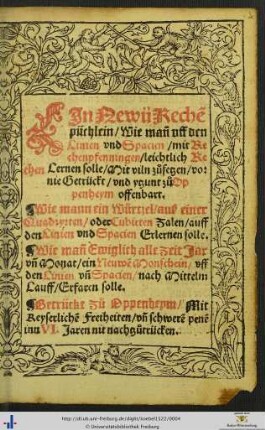 Ein Newü Rechē
püchlein / Wie mañ vff den
Linien vnd Spacien / mit Re
chenpfenningen / leichtlich Re
chen Lernen solle / Mit viln zůsetzen / vor
nie Getrückt / vnd yetzunt zů Op
penheym offenbart.
¶ Wie mann ein Würtzel / auß einer
Quadraten / oder Cubiten Zalen / auff
den Linien vnd Spacien Erlernen solle.
¶ Wie mañ Ewiglich alle Zeit Jar
vñ Monat / ein Neuwē Monschein / vff
den Linien vñ Spacien / nach Mitteln
Lauff / Erfaren solle.
¶ Getrückt Zů Oppenheym / Mit
Keyserlichē Freiheiten / vñ schwerē pene
inn VI. Jaren nit nachzůtrücken.
http://dl.ub.uni-freiburg.de/diglit/koebel1522/0004
© Universitätsbibliothek Freiburg
Baden-Württemberg